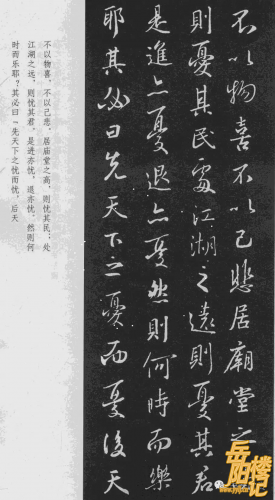 不以物喜不以己悲居廟堂之
則憂其民處江湖之遠則憂其君
是進亦憂退亦憂然則何時而樂
耶其必曰先天下之憂而憂後天
不以物喜，不以己悲，居庙堂之高，则忧其民；处
江湖之远，则忧其君，是进亦忧，退亦忧。然则何
时而乐耶？其必曰“先天下之忧而忧，后天
岳阳楼记